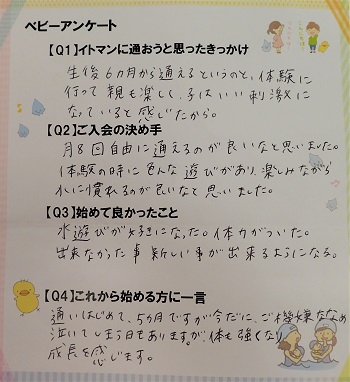 ベビーアンケート
【Q1】イトマンに通おうと思ったきっかけ
生後6カ月から通えるというのと、体験に
行って親も楽しく、子はいい刺激に
なっていると感じたから。
【Q2】ご入会の決め手
月8回自由に通えるのが良いなと思いました。
体験の時に色んな遊びがあり、楽しみながら
水に慣れるのが良いなと思いました。
【Q3】始めて良かったこと
水遊びが好きになった。体力がついた。
出来なかった事 新しい事が出来るようになる。
【Q4】これから始める方に一言
通いはじめて、5カ月ですが今だに、ご機嫌ななめ
泣いてしまう日もありますが、体も強くなり
成長を感じます。